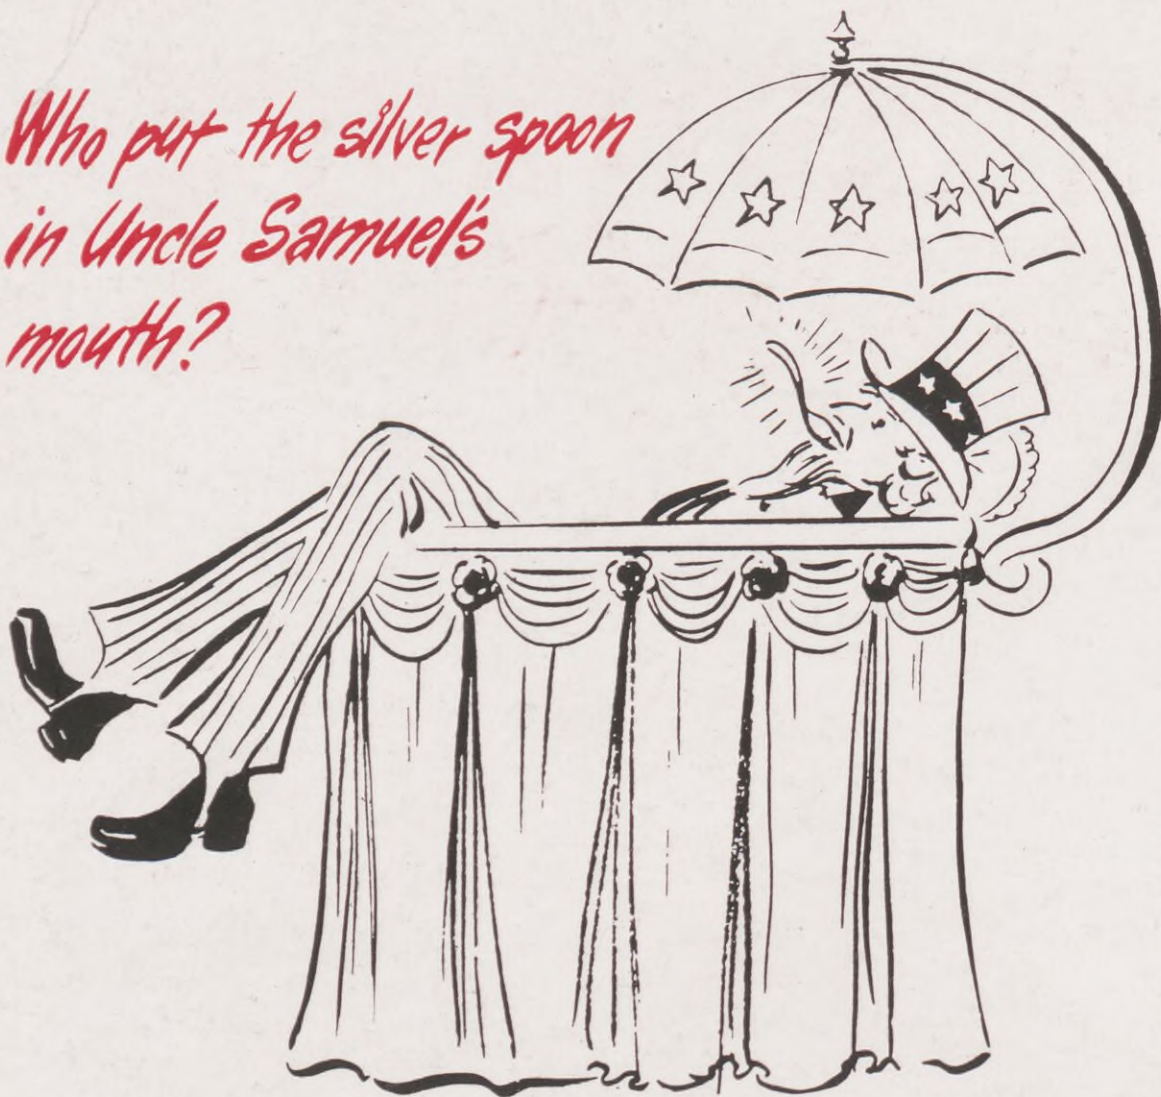 Who put the silver spoon
in Uncle Samuel's
mouth?